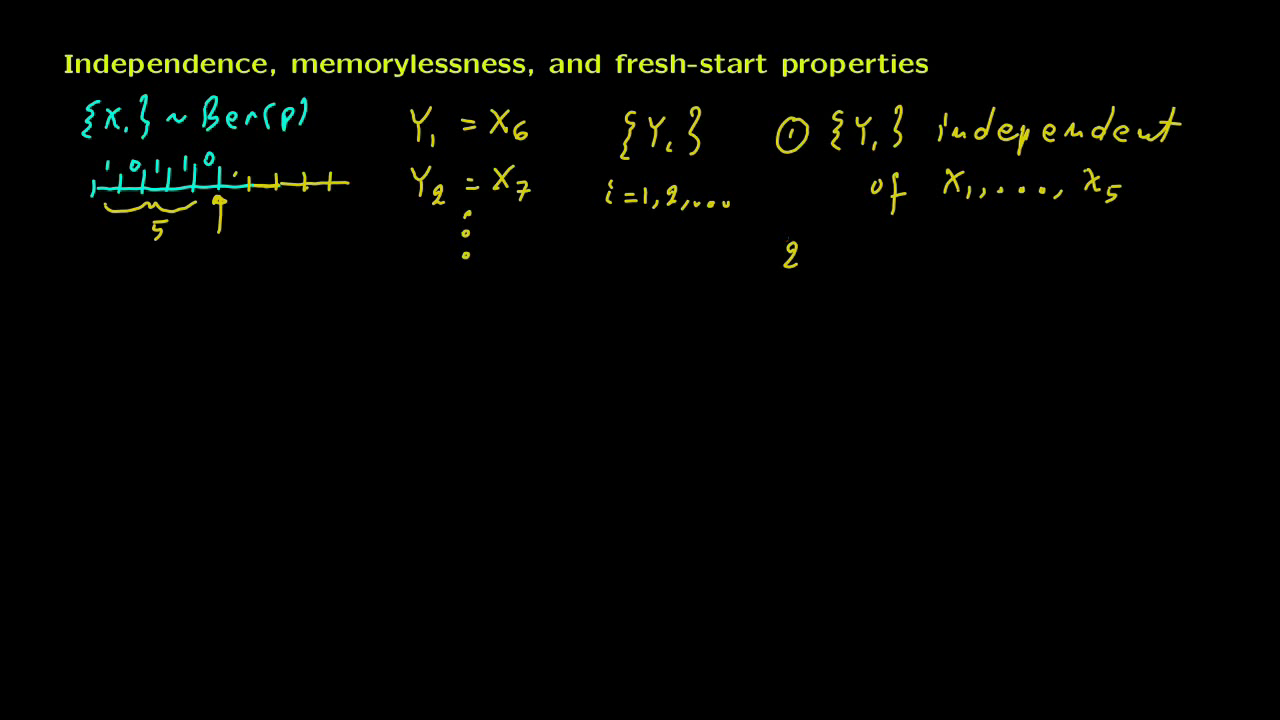 Independence, memorylessness, and fresh-start properties
{Xᵢ} ~ Ber(p)
1 0 1 1 0
5
Y₁ = X₆
Y₂ = X₇
{Yᵢ}
i = 1, 2, ...
① {Yᵢ} independent
of X₁, ..., X₅
2